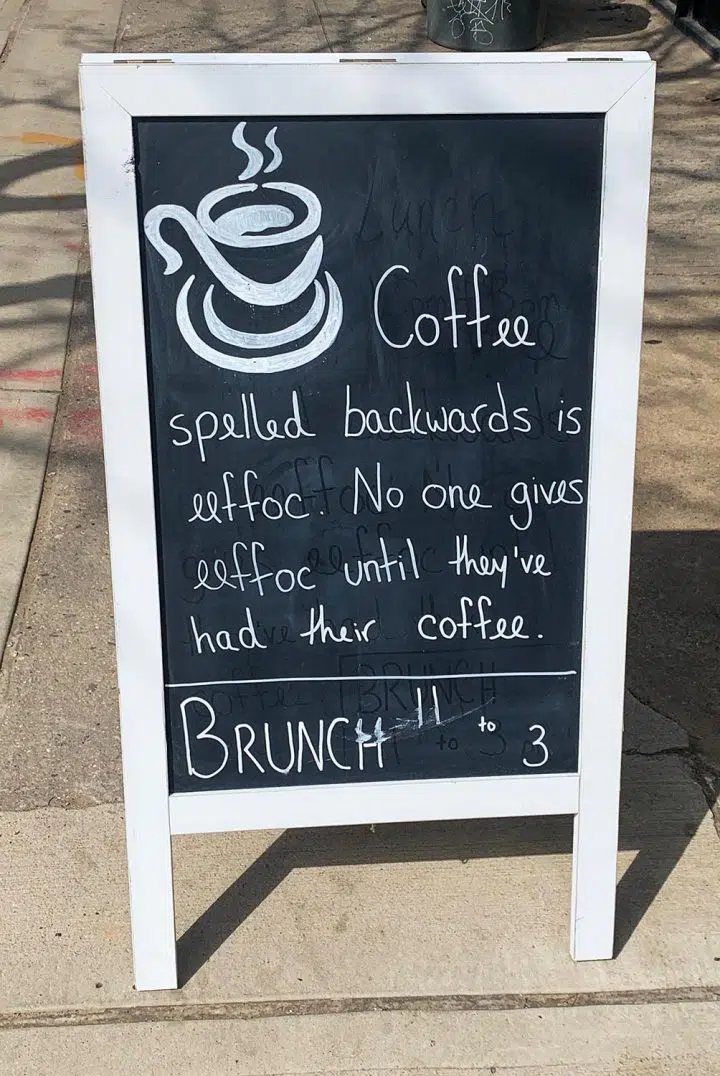 Coffee
spelled backwards is
eeffoc. No one gives
eeffoc until they've
had their coffee.
BRUNCH 11 to 3